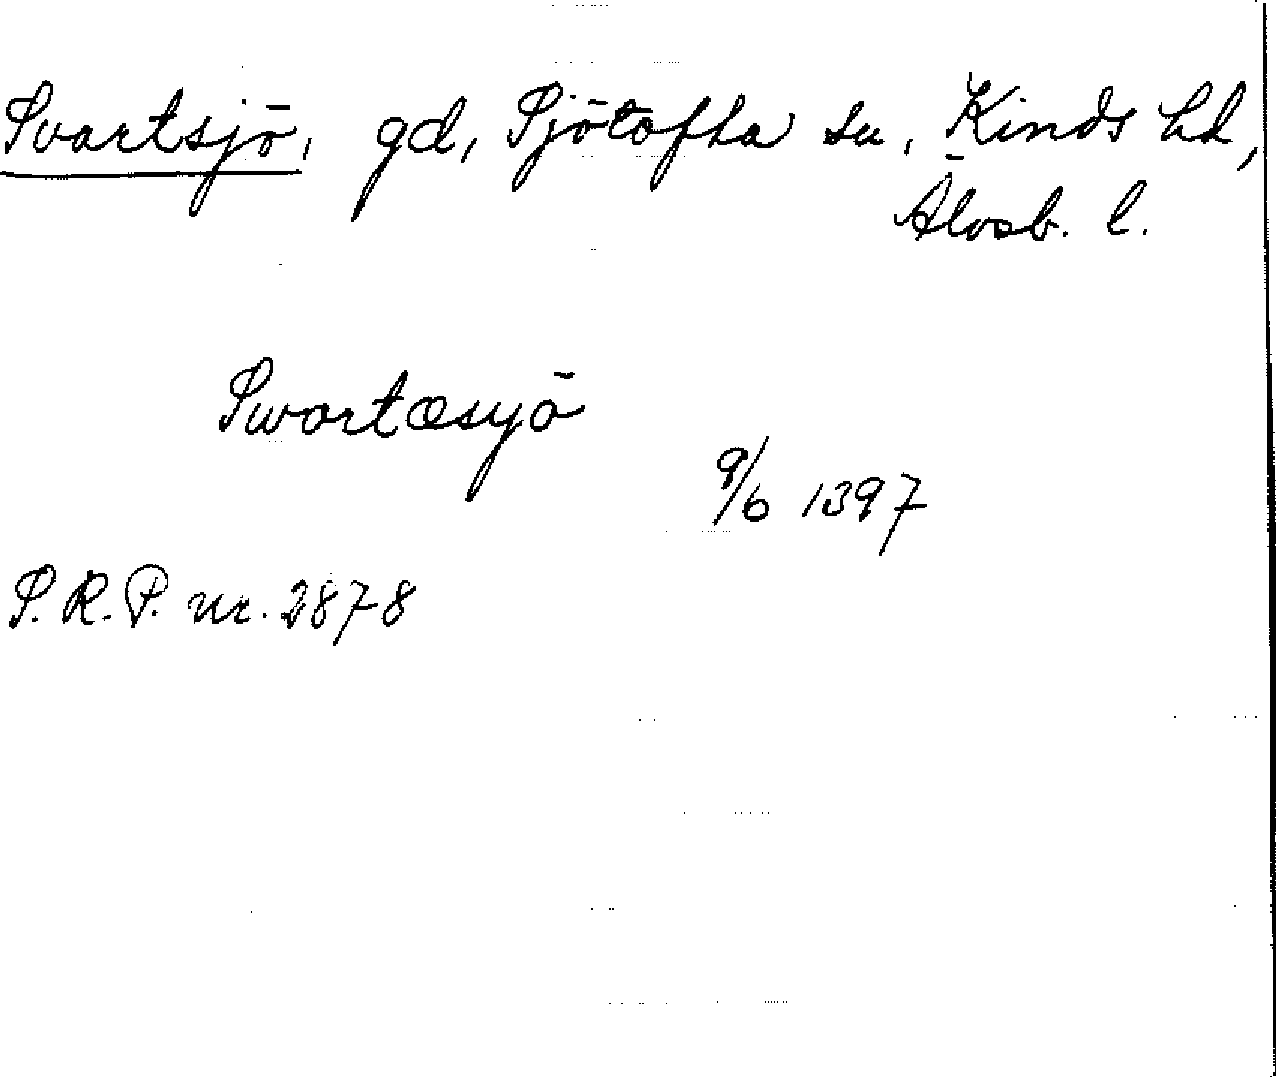 Svartsjö, gd, Sjötofta sn, Kinds hd,
Älvsb. l.
Swartæsyö
9/6 1397
S.R.P. nr. 2878